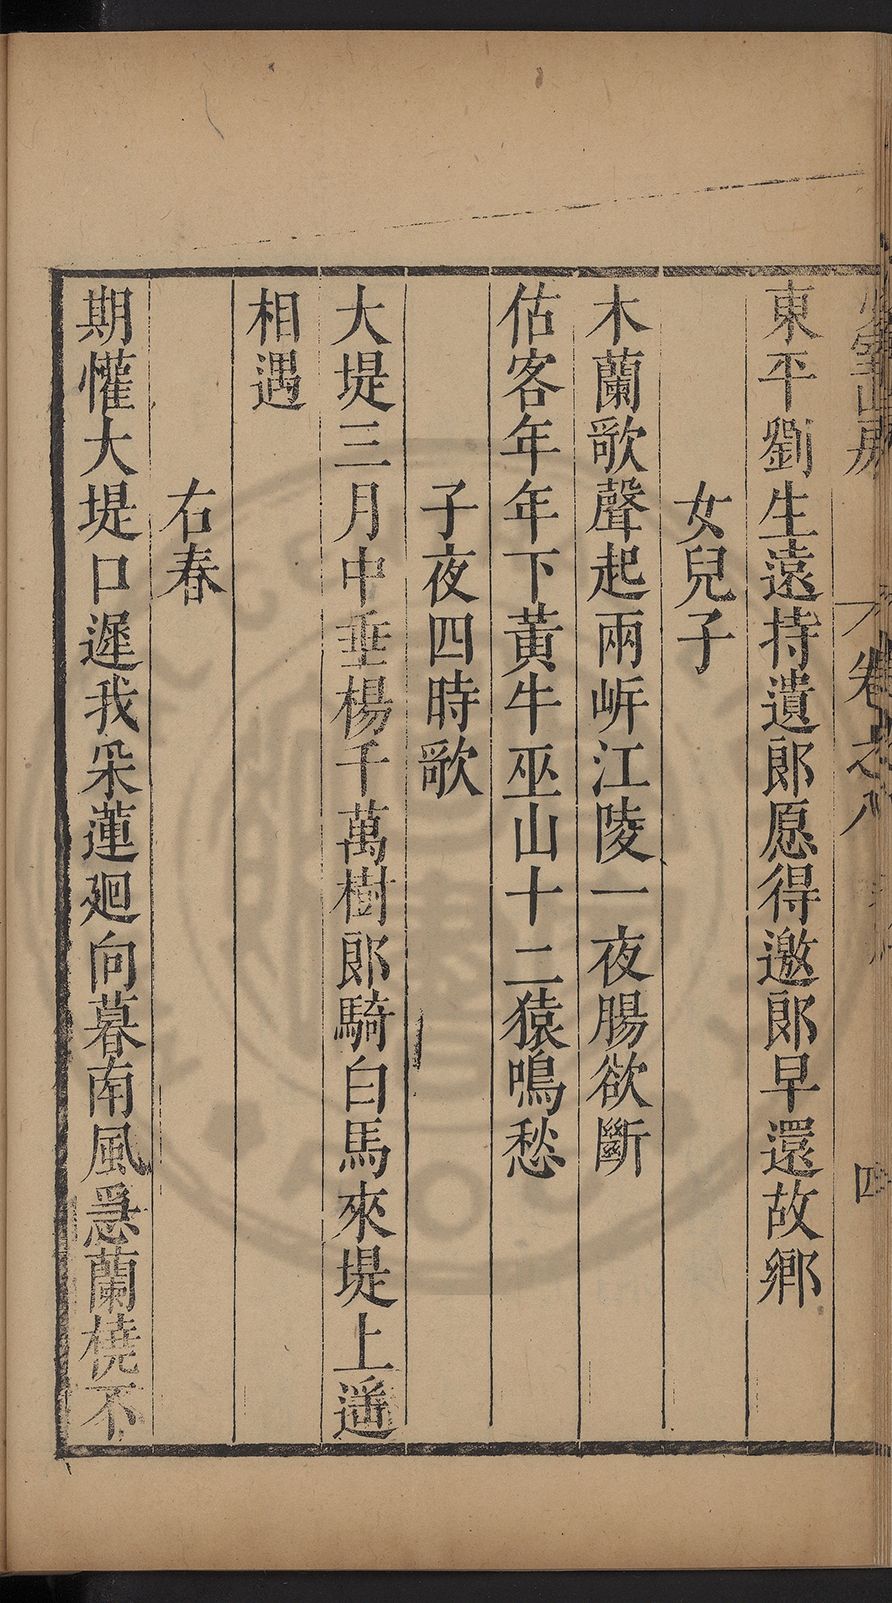 東平劉生遠持遺郎愿得邀郎早還故鄉
女兒子
木蘭歌聲起兩岍江陵一夜腸欲斷
估客年年下黃牛巫山十二猿鳴愁
子夜四時歌
大堤三月中垂楊千萬樹郎騎白馬來堤上遥
相遇
右春
期懽大堤口遲我采蓮廻向暮南風急蘭橈不
卷之八
四